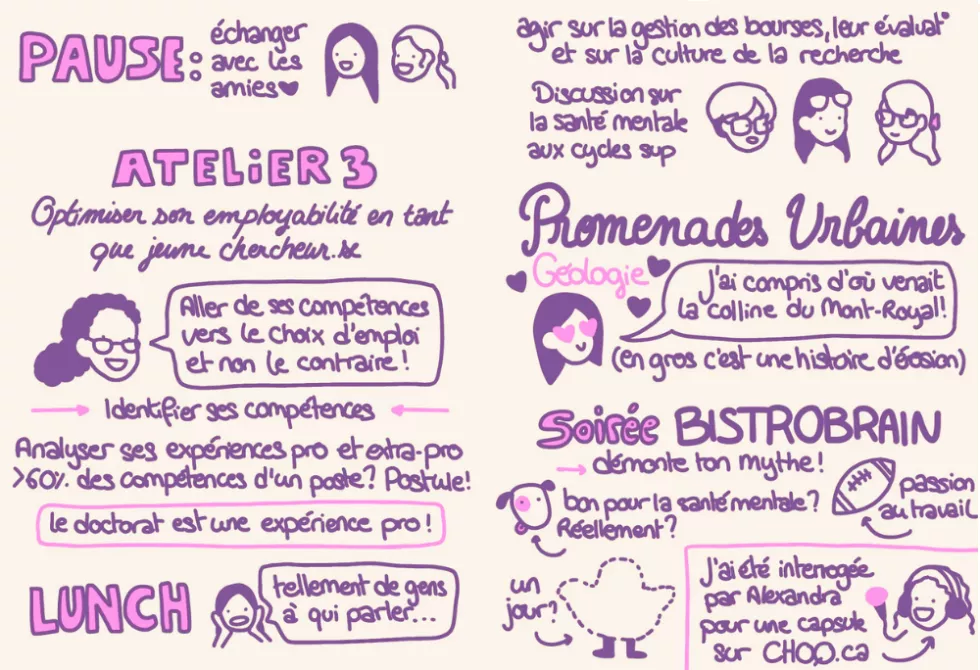 PAUSE:
échanger
avec les
amies
ATELIER 3
Optimiser son employabilité en tant
que jeune chercheur.se
Aller de ses compétences
vers le choix d'emploi
et non le contraire !
Identifier ses compétences
Analyser ses expériences pro et extra-pro
>60% des compétences d'un poste? Postule!
le doctorat est une expérience pro !
LUNCH
tellement de gens
à qui parler...
agir sur la gestion des bourses, leur évaluat°
et sur la culture de la recherche
Discussion sur
la santé mentale
aux cycles sup
Promenades Urbaines
Géologie
J'ai compris d'où venait
la colline du Mont-Royal!
(en gros c'est une histoire d'érosion)
Soirée BISTROBRAIN
démonte ton mythe !
bon pour la santé mentale ?
Réellement ?
passion
au travail
un
jour?
J'ai été interrogée
par Alexandra
pour une capsule
sur CHOQ.ca